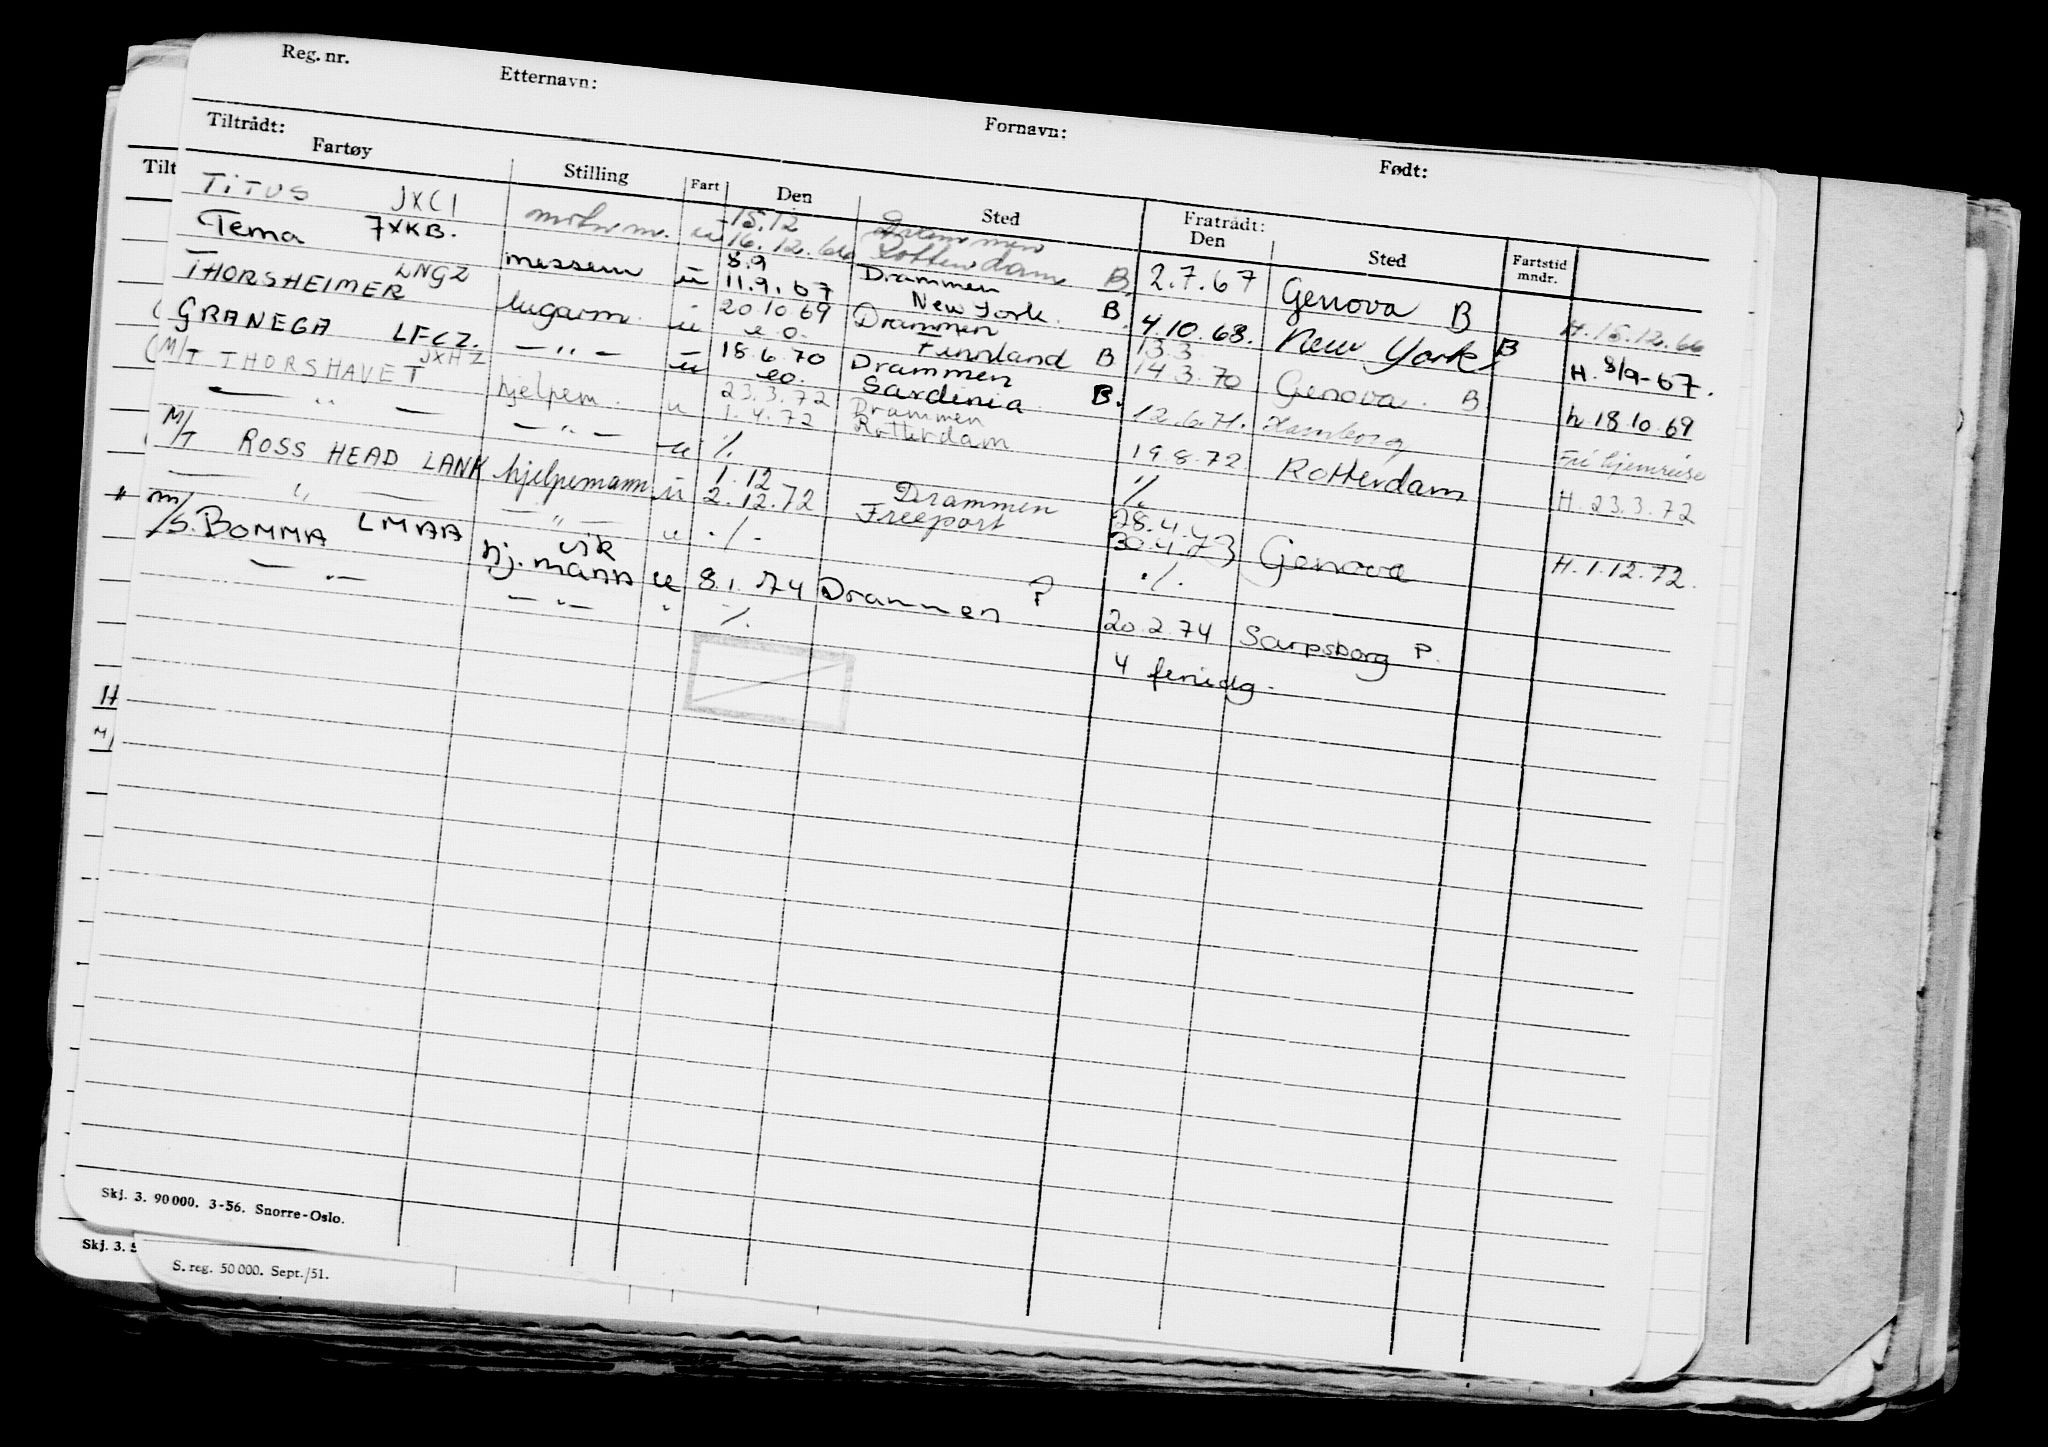 Reg. nr. Etternavn: Fornavn: Født:
Tiltrådt: Fratrådt:
Fartøy Stilling Fart Den Sted Den Sted Fartstid mndr.
TiTUS JXCI u 15.12 Drammen
16.12.66 Rotterdam B. 2.7.67 Genova B H. 15.12.66
Tema JXKB. messem u 8.9 Drammen
11.9.67 New York B. 4.10.68. New York B H. 8/9-67.
THORSHEIMER LNGZ lugarm. u 20.10.69 Drammen 13.3
e.o. Finnland B 14.3.70 Genova. B h 18.10.69
GRANEGA LFCZ. — " — u 18.6.70 Drammen
eo. Sardinia B. 12.6.71. Hamborg Fri hjemreise
M/T THORSHAVET JXHZ hjelpem. u 23.3.72 Drammen
1.4.72 Rotterdam 19.8.72. Rotterdam H. 23.3.72
— " — — " — u ./. ./.
M/T ROSS HEAD LANK hjelpemann u 1.12 Drammen 28.4.73
2.12.72 Freeport 30.4.73 Genova H. 1.12.72.
— " — — " — u ./. ./.
m/s. BOMMA LMAA vik hj. mann u 8.1.74 Drammen P 20.2.74 Sarpsborg P.
— " — — " — " ./. 4 feriedg.
Skj. 3. 90 000. 3-56. Snorre-Oslo.
Skj. 3.
S. reg. 50 000. Sept./51.
Tilt
H
M